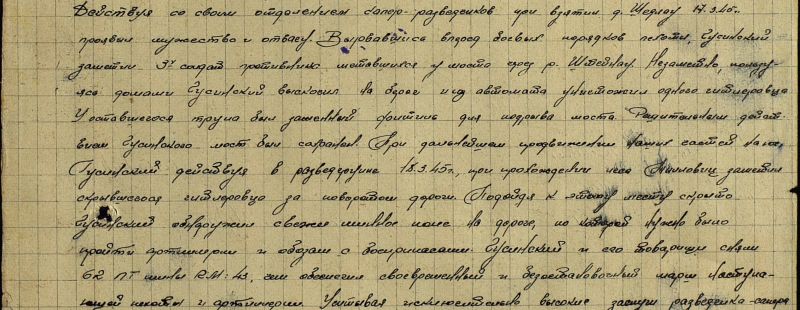 Действуя со своим отделением сапер-разведчиков при взятии д. 17.3.45г.
проявил мужество и отвагу. Вырвавшийся вперед боевых порядков пехоты, Гусинский
заметил 3х солдат противника метавшихся у моста через р. Штейнау. Незаметно, пользу-
ясь домами Гусинский выскочил на берег и из автомата уничтожил одного гитлеровца
У оставшегося трупа был зажженный фитиль для подрыва моста. Решительным дейст-
вием Гусинского мост был сохранен. При дальнейшем продвижении наших частей на юг
Гусинский действуя в разведгруппе 18.3.45г., при прохождении заметил
скрывшегося гитлеровца за поворотом дороги. Подойдя к этому месту скрыто
Гусинский обнаружил свежее минное поле на дороге, по которой нужно было
пройти артиллерии и обозам с боеприпасами. Гусинский и его товарищи сняли
62 ПТ мины R.M.-43, чем обеспечил своевременный и безостановочный марш наступа-
ющей пехоты и артиллерии. Учитывая исключительно высокие заслуги разведчика-сапера